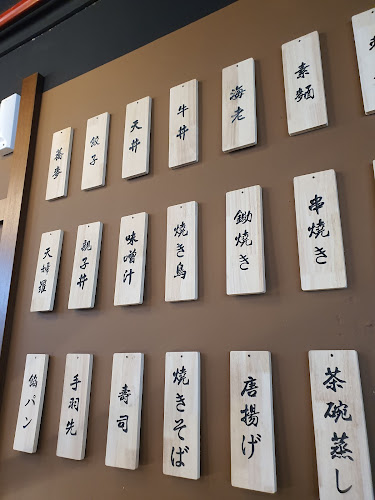 蕎麦
餃子
天丼
牛丼
海老
素麺
天婦羅
親子丼
味噌汁
焼き鳥
鋤焼き
串焼き
餡パン
手羽先
寿司
焼きそば
唐揚げ
茶碗蒸し